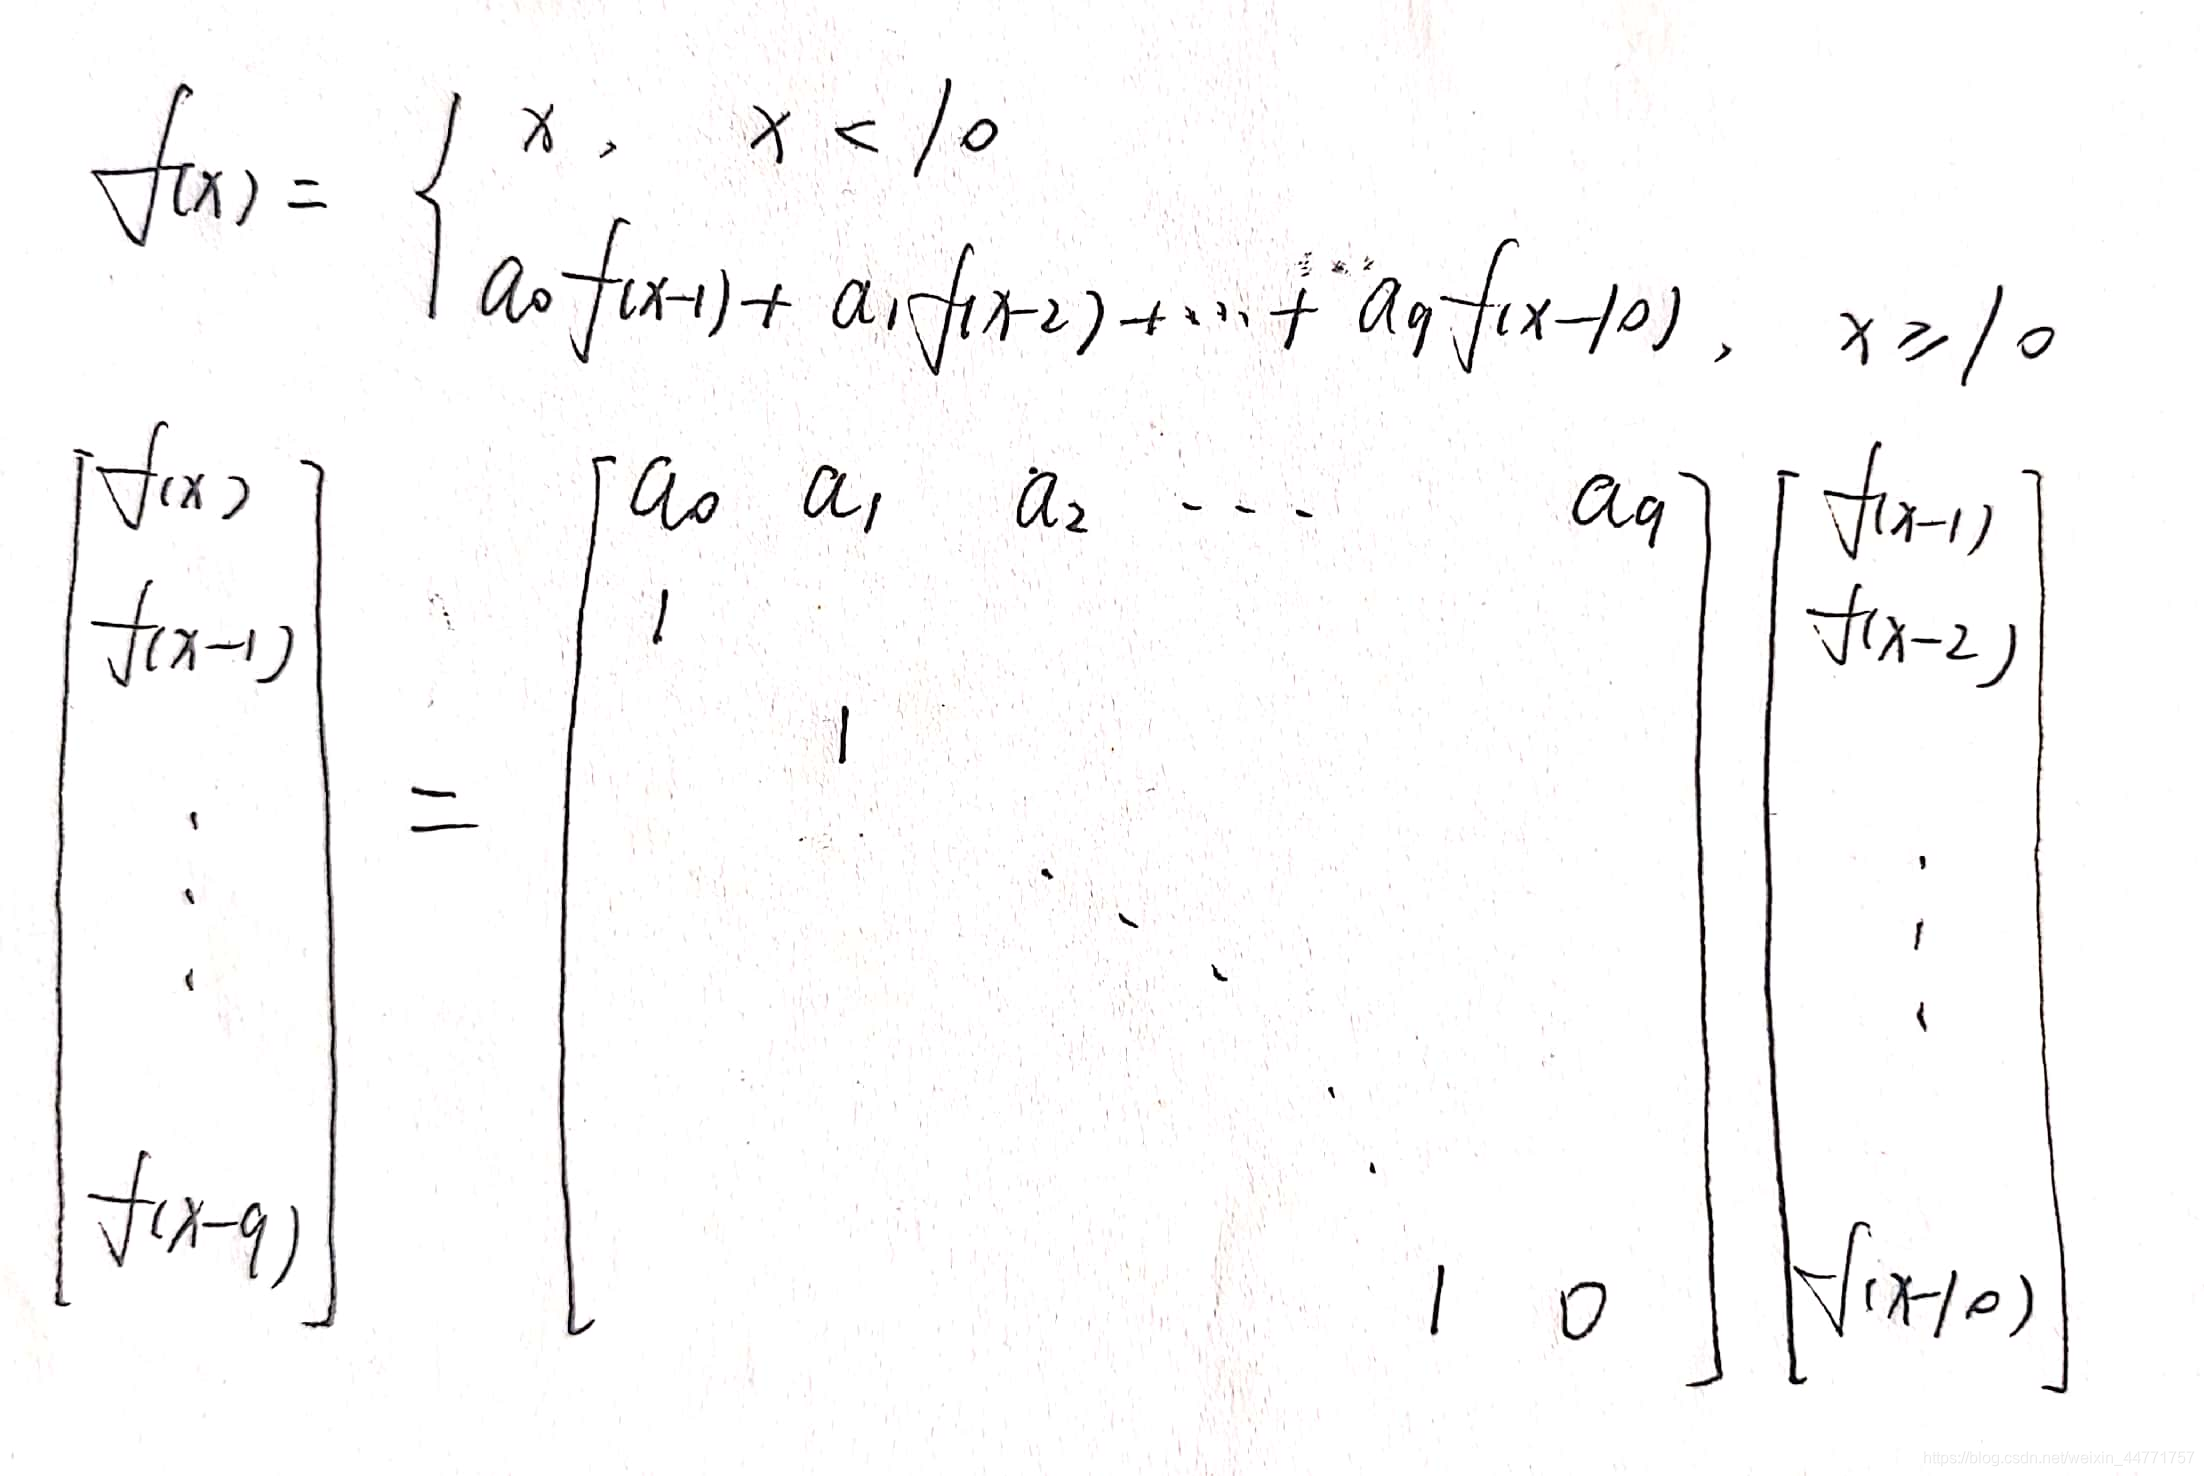 f(x) = { x, x < 10
a₀f(x-1) + a₁f(x-2) + ... + a₉f(x-10), x ⩾ 10
[ f(x) ] [ a₀ a₁ a₂ --- a₉ ] [ f(x-1) ]
[ f(x-1) ] [ 1 ] [ f(x-2) ]
1
=
[ f(x-9) ] [ 1 0 ] [ f(x-10) ]
https://blog.csdn.net/weixin_44771757